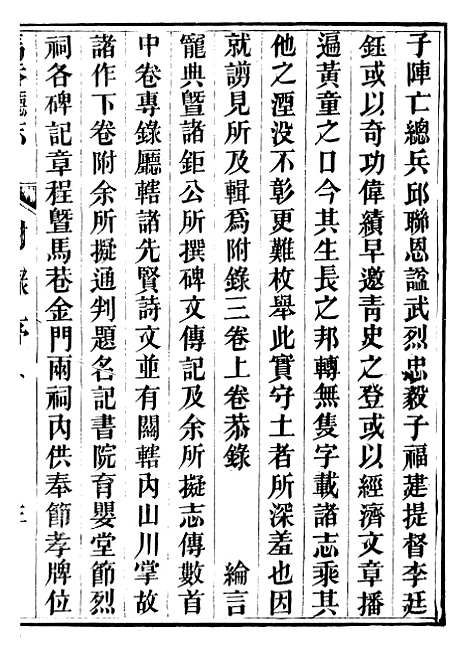 子陣亡總兵邱聯恩諡武烈忠毅子福建提督李廷
鈺或以奇功偉績早邀青史之登或以經濟文章播
遍黃童之口今其生長之邦轉無隻字載諸志乘其
他之湮没不彰更難枚舉此實守土者所深羞也因
就謭見所及輯爲附錄三卷上卷恭錄　　　綸言
寵典曁諸鉅公所撰碑文傳記及余所擬志傳數首
中卷專錄廳轄諸先賢詩文並有關轄內山川掌故
諸作下卷附余所擬通判題名記書院育嬰堂節烈
祠各碑記章程曁馬巷金門兩祠內供奉節孝牌位